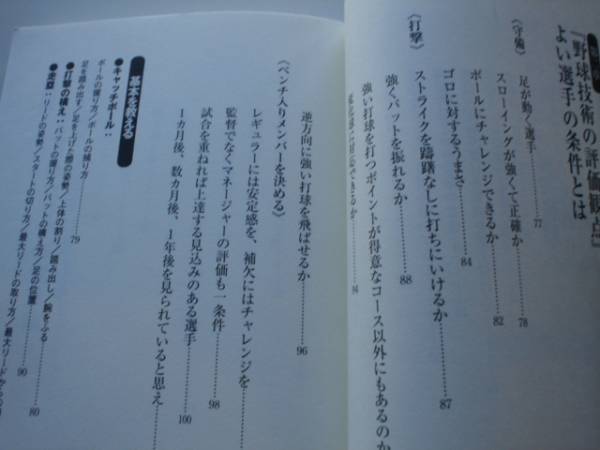 「野球技術の評価観点」
よい選手の条件とは
〈守備〉
足が動く選手 77
スローイングが強くて正確か 78
ボールにチャレンジできるか 82
ゴロに対するうまさ 84
〈打撃〉
ストライクを躊躇なしに打ちにいけるか 87
強くバットを振れるか 88
強い打球を打つポイントが得意なコース以外にもあるのか
逆方向に強い打球を飛ばせるか 96
〈ベンチ入りメンバーを決める〉
レギュラーには安定感を、補欠にはチャレンジを
監督でなくマネージャーの評価も一条件 98
試合を重ねれば上達する見込みのある選手 100
1カ月後、数カ月後、1年後を見られていると思え
基本を教える
●キャッチボール：
ボールの握り方／ボールの捕り方
足を踏み出す／足を上げた際の姿勢／上体の割り／踏み出し／腕をふる 79
●打撃の構え：バットの握り方／バットの構え方／足の位置 80
●走塁：リードの姿勢／スタートの切り方／最大リードの取り方／最大リードから 90